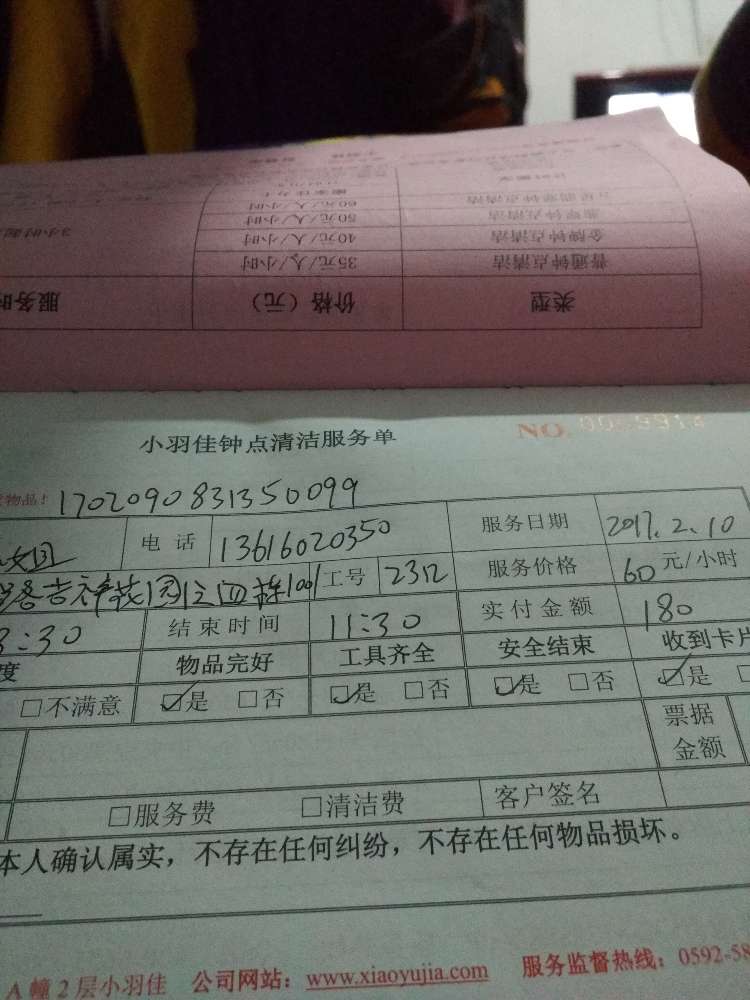 类型 价格（元） 服务时
普通钟点清洁 35元/人/小时
金牌钟点清洁 40元/人/小时 3小时起
钟点清洁 50元/人/小时
钟点清洁 60元/人/小时
小羽佳钟点清洁服务单 NO.
物品! 1702090831350099
电话 13616020350 服务日期 2017.2.10
花园 1001 工号 2312 服务价格 60 元/小时
3:30 结束时间 11:30 实付金额 180
度 物品完好 工具齐全 安全结束 收到卡片
□不满意 ☑是 □否 ☑是 □否 ☑是 □否 ☑是
票据
金额
□服务费 □清洁费 客户签名
本人确认属实，不存在任何纠纷，不存在任何物品损坏。
A幢2层小羽佳 公司网站：www.xiaoyujia.com 服务监督热线：0592-58